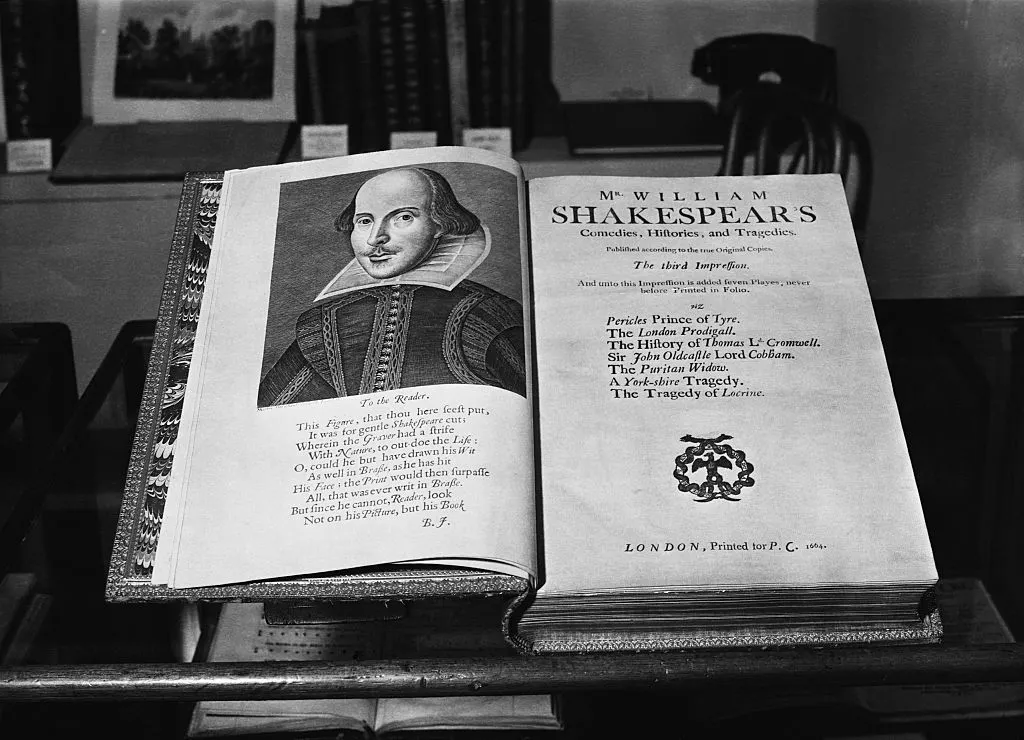 To the Reader.
This Figure, that thou here ſeeſt put,
It was for gentle Shakeſpeare cut;
Wherein the Graver had a ſtrife
With Nature, to out-doe the Life:
O, could he but have drawn his Wit
As well in Braſſe, as he has hit
His Face; the Print would then ſurpaſſe
All, that was ever writ in Braſſe.
But ſince he cannot, Reader, look
Not on his Picture, but his Book
B. J.
Mr. WILLIAM
SHAKESPEAR'S
Comedies, Hiſtories, and Tragedies.
Publiſhed according to the true Original Copies.
The third Impreſſion.
And unto this Impreſſion is added ſeven Playes, never
before Printed in Folio.
viz.
Pericles Prince of Tyre.
The London Prodigall.
The Hiſtory of Thomas Ld. Cromwell.
Sir John Oldcaſtle Lord Cobham.
The Puritan Widow.
A York-shire Tragedy.
The Tragedy of Locrine.
LONDON, Printed for P. C. 1664.